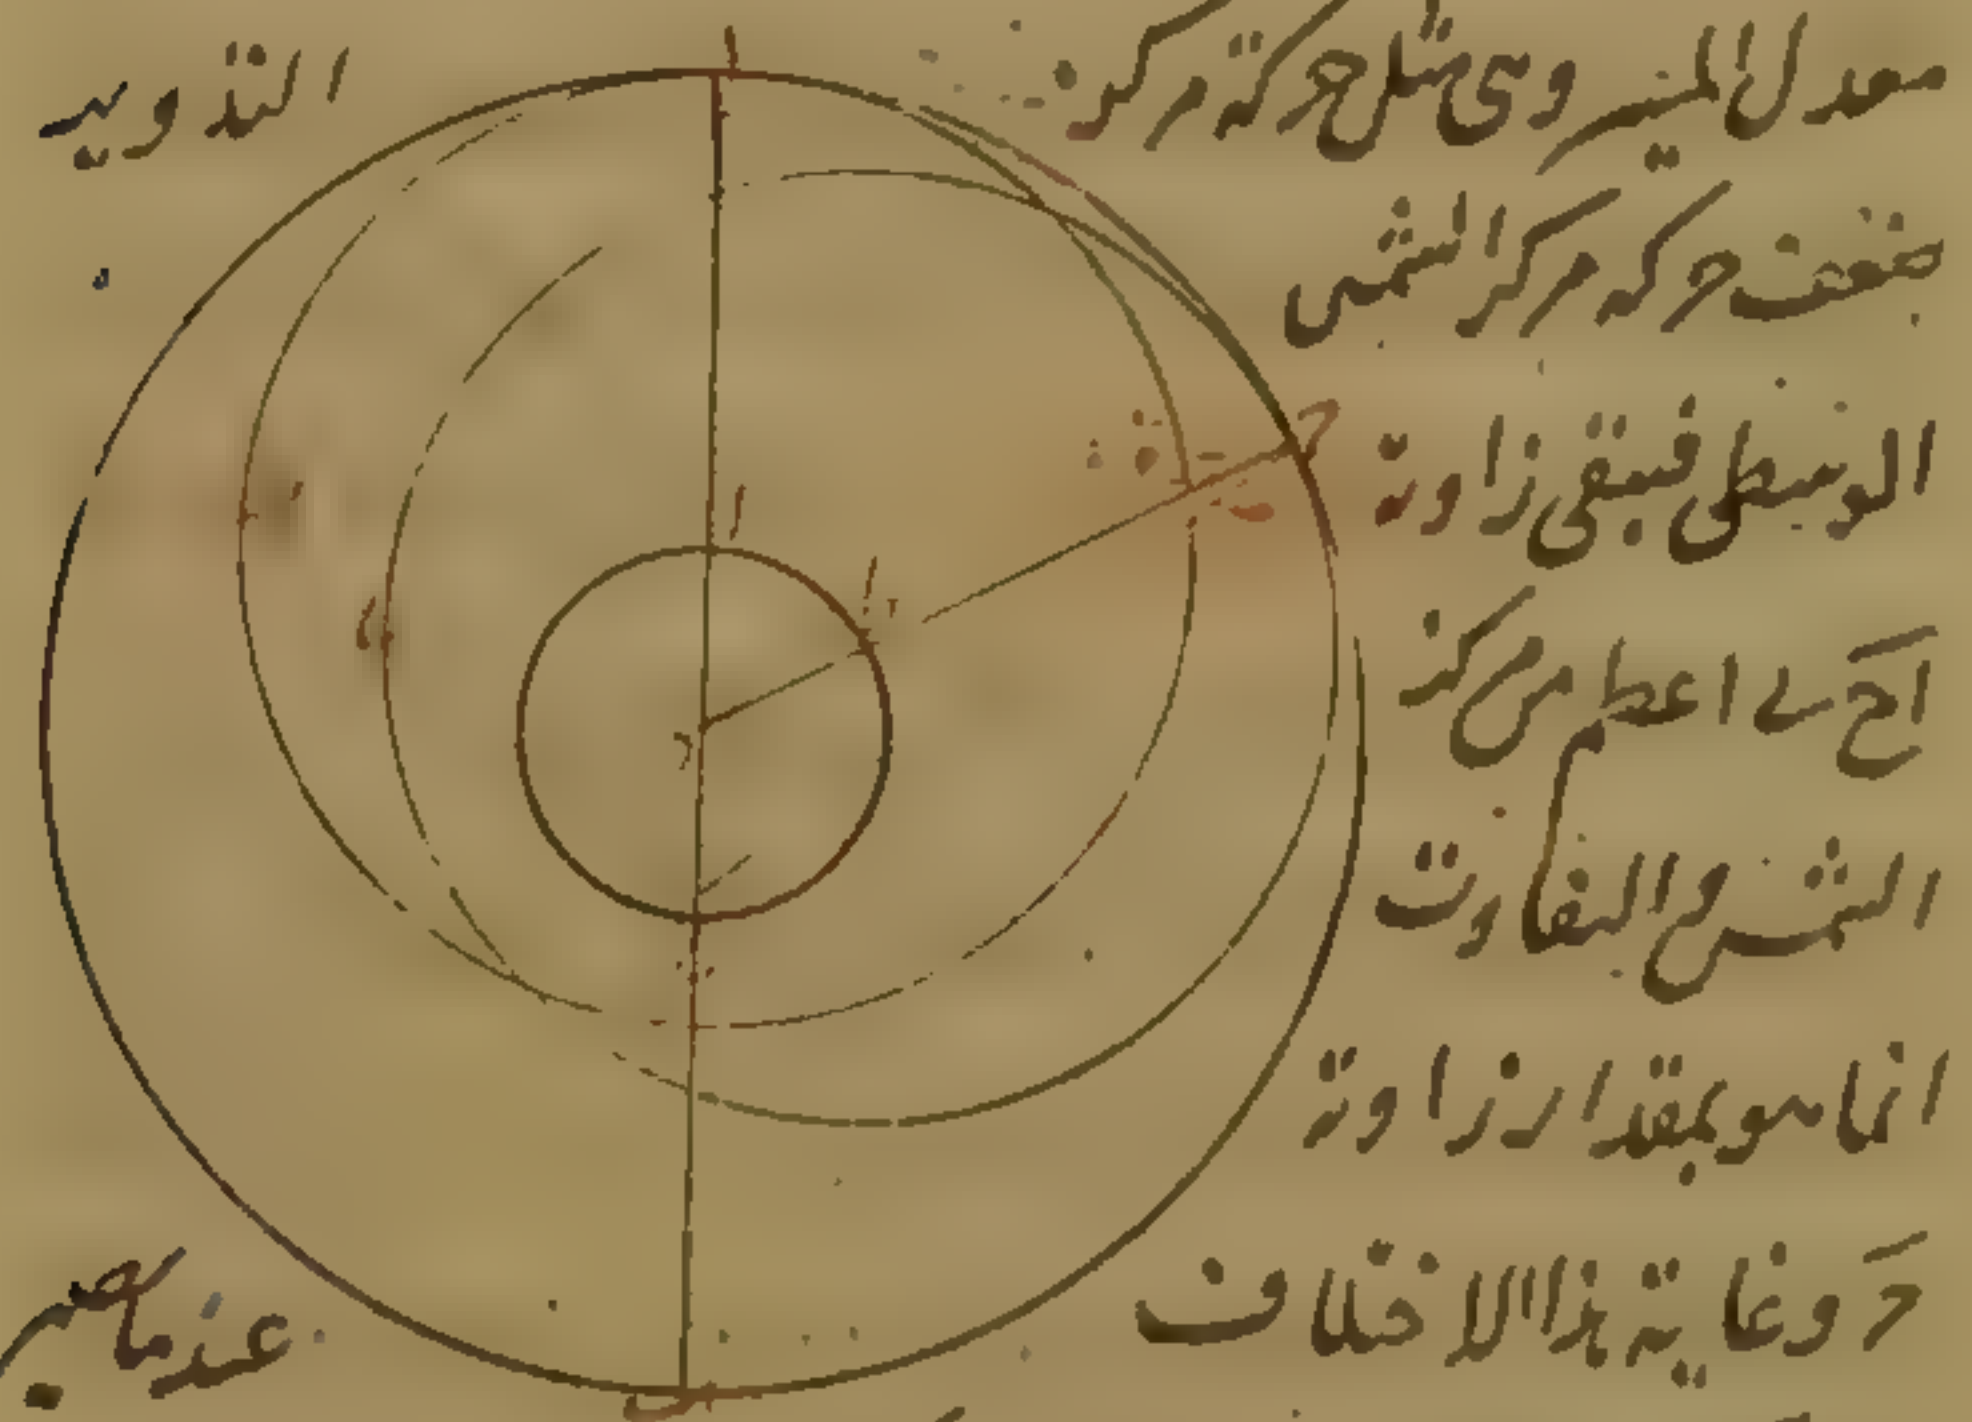 معدل المسير وهى مثل حركة مركز التدوير
ضعف حركة مركز الشمس
الوسطى فبقى زاوية
اعظم من مركز
الشمس والتفاوت
انما هو بمقدار زاوية
ح وغاية هذا الاختلاف عند ما